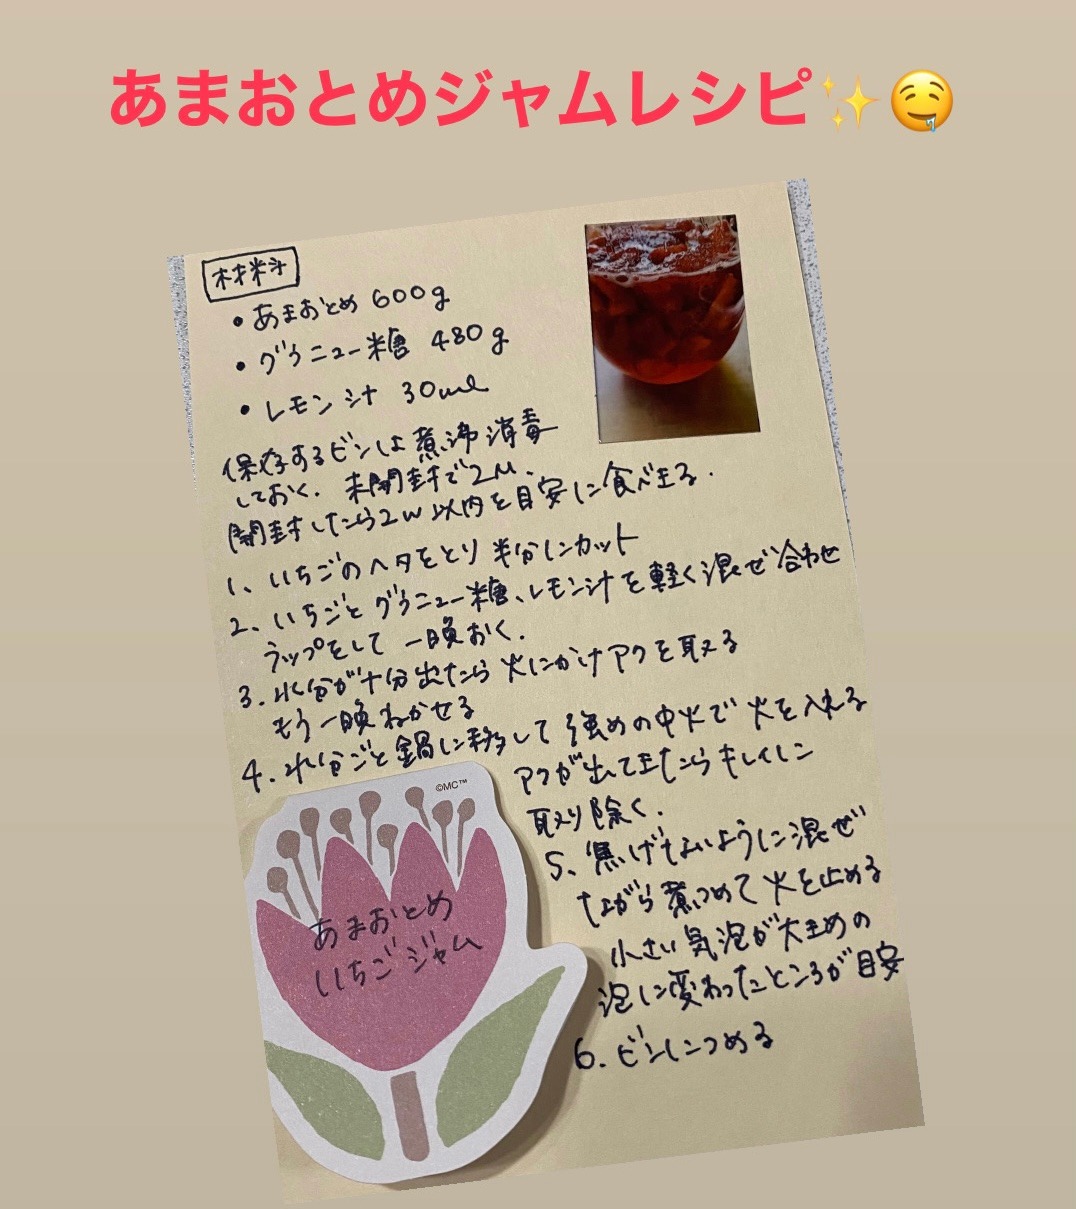 あまおとめジャムレシピ✨🤤
材料
・あまおとめ 600g
・グラニュー糖 480g
・レモン汁 30ml
保存するビンは煮沸消毒
しておく. 未開封で2M.
開封したら2w以内を目安に食べ至る.
1、いちごのヘタをとり 半分にカット
2、いちごと グラニュー糖、レモン汁を軽く混ぜ合わせ
ラップをして 一晩おく.
3.水分が十分出たら 火にかけアクを取る
もう一晩ねかせる
4.水分ごと鍋に移して 強めの中火で 火を入れる
アクが出てきたらキレイに
取り除く.
5、焦げないように混ぜ
ながら煮つめて 火を止める
小さい気泡が大きめの
泡に変わったところが目安
6.ビンにつめる
©MC™
あまおとめ
いちごジャム